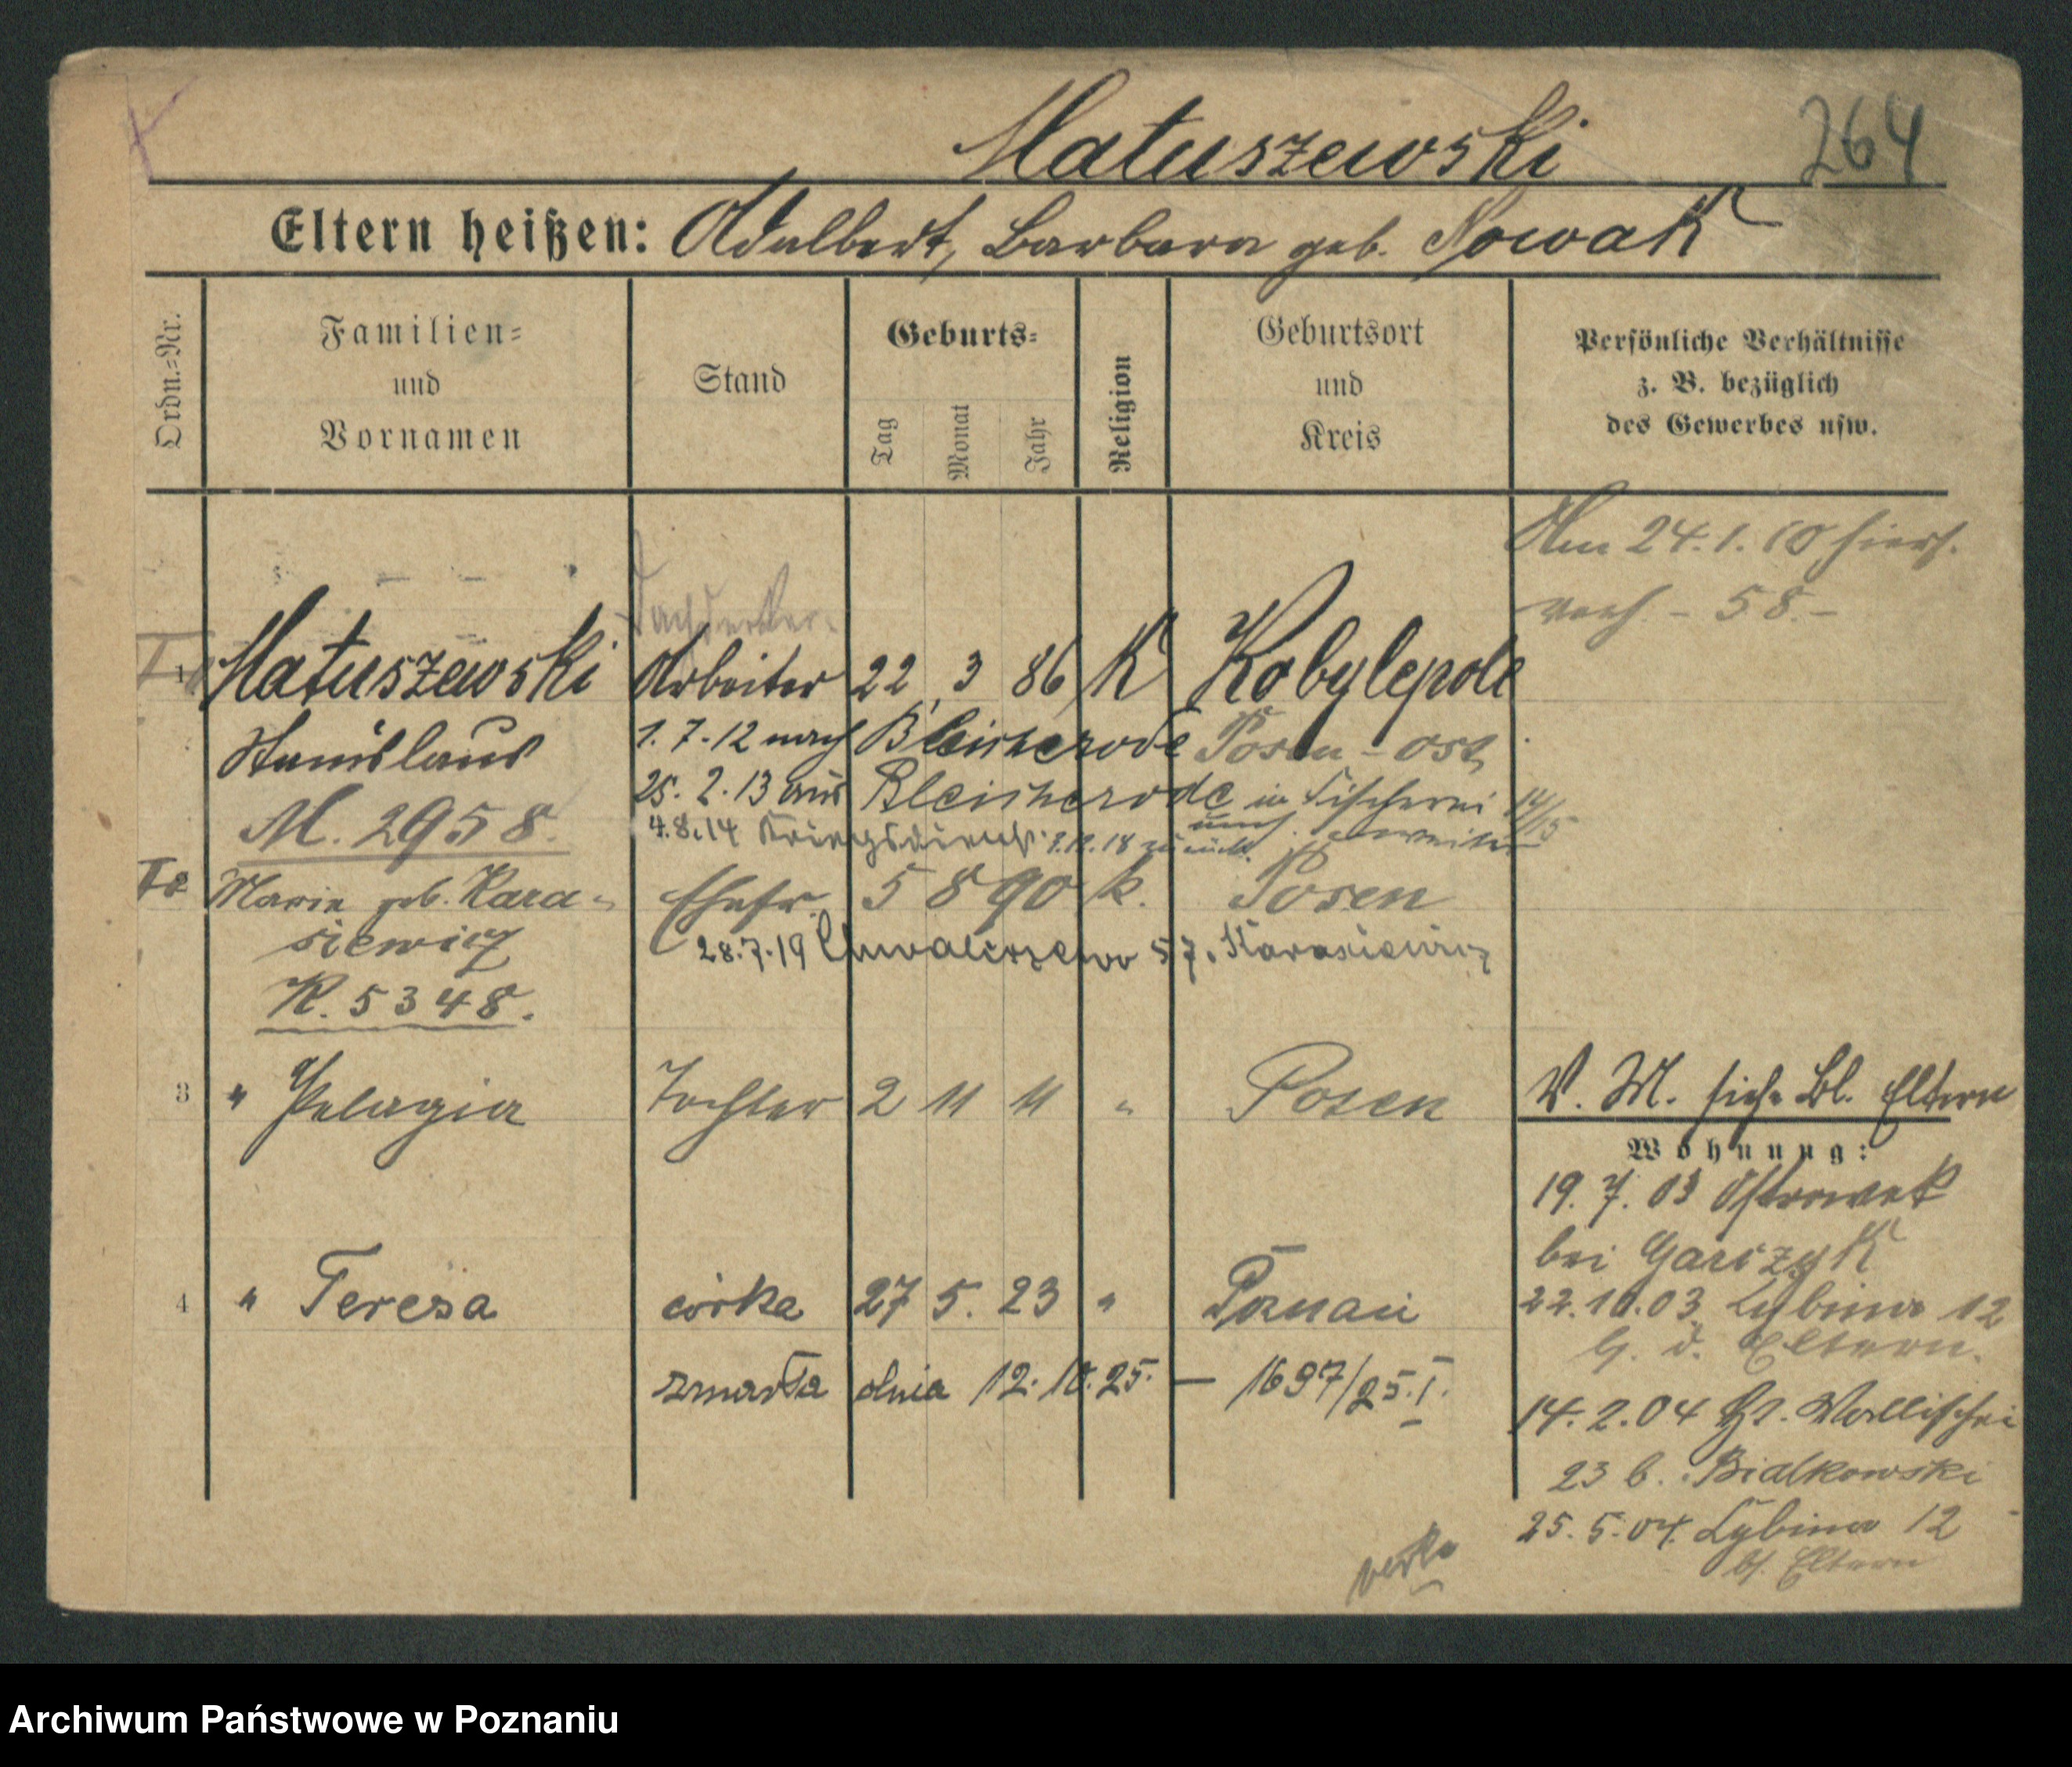 Matuszewski 264
Eltern heißen: Adalbert, Barbara geb. Nowak
Ordn.=Nr.
Familien=
und
Vornamen
Stand
Geburts=
Tag
Monat
Jahr
Religion
Geburtsort
und
Kreis
Persönliche Verhältnisse
z. B. bezüglich
des Gewerbes usw.
Am 24.1.10 hiers.
verh. - 58.-
Dachdecker-
1 Matuszewski Arbeiter 22 3 86 K Kobylepole
Stanislaus 1.7.12 nach Bleicherode Posen-Ost
25.2.13 aus Bleicherode in Fischerei 14/15
M. 2958. 4.8.14 Kriegsdienst. 18 zurück
Marie geb. Kara- Ehefr. 5 8 90 k. Posen
siewicz 28.7.19 Chwaliszewo 57. Karasiewicz
K. 5348.
3 " Pelagia Tochter 2 11 11 " Posen
V. M. siehe Bl. Eltern
Wohnung:
19.7.03 Ostrowek
bei Garczyk
4 " Teresa córka 27 5. 23 " Poznań
22.10.03 Cybina 12
b. d. Eltern.
zmarła dnia 12.10.25. — 1697/25.I.
14.2.04 Wallischei
23 b. Bialkowski
25.5.04. Cybina 12
b/ Eltern
Archiwum Państwowe w Poznaniu